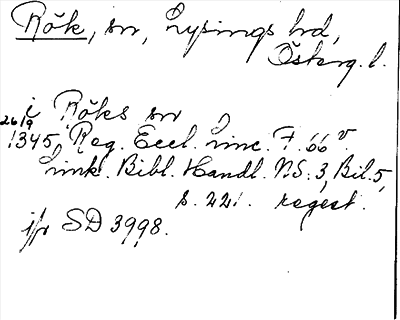 Rök, sn, Lysings hd,
Österg. l.
i Röks sn
26/9
1345, Reg. Eccl. Linc. F. 66 v.
Link. Bibl. Handl. NS. 3, Bil. 5,
s. 221. regest.
jfr SD 3998.